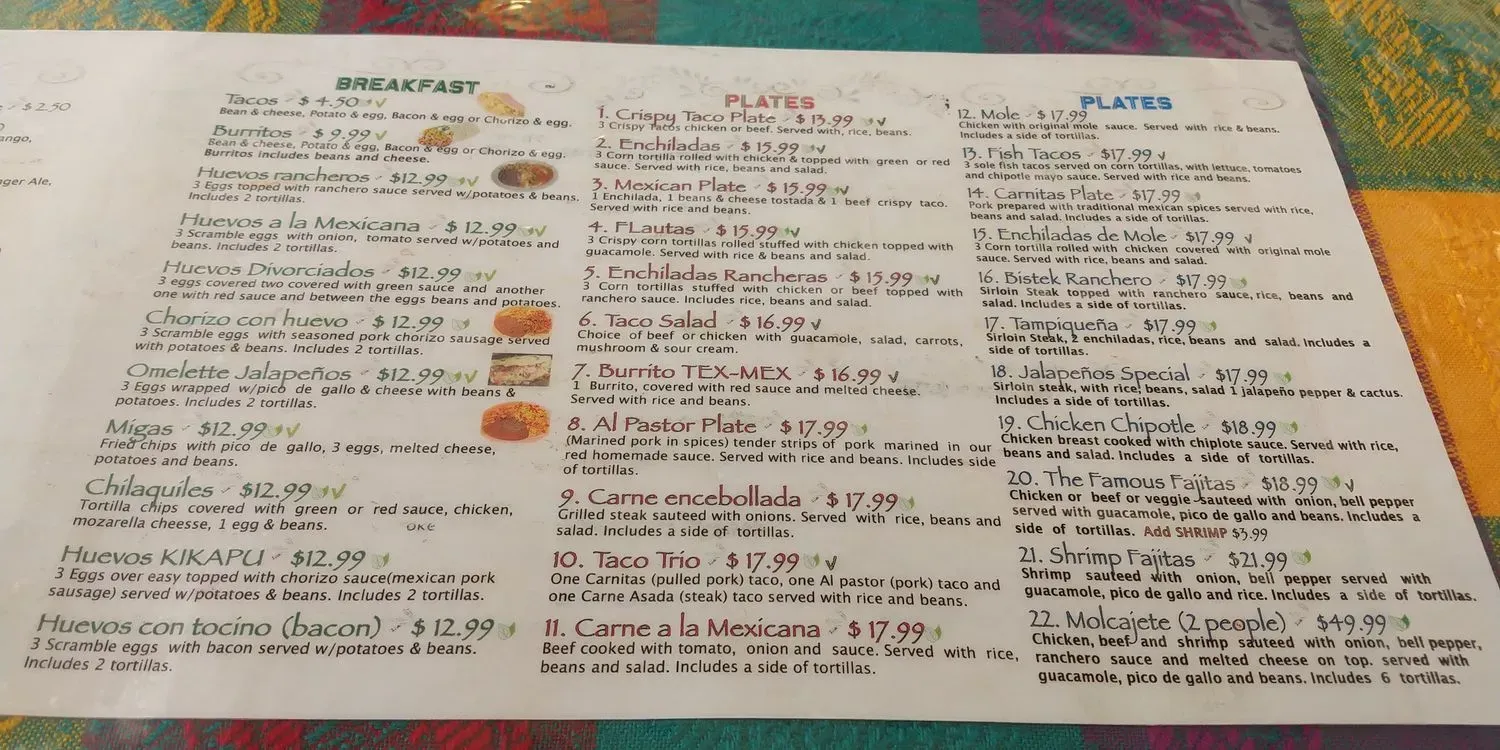 $ 2.50
ango,
ager Ale,
BREAKFAST
Tacos - $ 4.50
Bean & cheese, Potato & egg, Bacon & egg or Chorizo & egg.
Burritos - $ 9.99
Bean & cheese, Potato & egg, Bacon & egg or Chorizo & egg.
Burritos includes beans and cheese.
Huevos rancheros - $12.99
3 Eggs topped with ranchero sauce served w/potatoes & beans.
Includes 2 tortillas.
Huevos a la Mexicana - $ 12.99
3 Scramble eggs with onion, tomato served w/potatoes and
beans. Includes 2 tortillas.
Huevos Divorciados - $12.99
3 eggs covered two covered with green sauce and another
one with red sauce and between the eggs beans and potatoes.
Chorizo con huevo - $ 12.99
3 Scramble eggs with seasoned pork chorizo sausage served
with potatoes & beans. Includes 2 tortillas.
Omelette Jalapeños - $12.99
3 Eggs wrapped w/pico de gallo & cheese with beans &
potatoes. Includes 2 tortillas.
Migas - $12.99
Fried chips with pico de gallo, 3 eggs, melted cheese,
potatoes and beans.
Chilaquiles - $12.99
Tortilla chips covered with green or red sauce, chicken,
mozarella cheesse, 1 egg & beans.
OKE
Huevos KIKAPU - $12.99
3 Eggs over easy topped with chorizo sauce(mexican pork
sausage) served w/potatoes & beans. Includes 2 tortillas.
Huevos con tocino (bacon) - $ 12.99
3 Scramble eggs with bacon served w/potatoes & beans.
Includes 2 tortillas.
PLATES
1. Crispy Taco Plate - $ 13.99
3 Crispy Tacos chicken or beef. Served with, rice, beans.
2. Enchiladas - $ 15.99
3 Corn tortilla rolled with chicken & topped with green or red
sauce. Served with rice, beans and salad.
3. Mexican Plate - $ 15.99
1 Enchilada, 1 beans & cheese tostada & 1 beef crispy taco.
Served with rice and beans.
4. FLautas - $ 15.99
3 Crispy corn tortillas rolled stuffed with chicken topped with
guacamole. Served with rice & beans and salad.
5. Enchiladas Rancheras - $ 15.99
3 Corn tortillas stuffed with chicken or beef topped with
ranchero sauce. Includes rice, beans and salad.
6. Taco Salad - $ 16.99
Choice of beef or chicken with guacamole, salad, carrots,
mushroom & sour cream.
7. Burrito TEX-MEX - $ 16.99
1 Burrito, covered with red sauce and melted cheese.
Served with rice and beans.
8. Al Pastor Plate - $ 17.99
(Marined pork in spices) tender strips of pork marined in our
red homemade sauce. Served with rice and beans. Includes side
of tortillas.
9. Carne encebollada - $ 17.99
Grilled steak sauteed with onions. Served with rice, beans and
salad. Includes a side of tortillas.
10. Taco Trio - $ 17.99
One Carnitas (pulled pork) taco, one Al pastor (pork) taco and
one Carne Asada (steak) taco served with rice and beans.
11. Carne a la Mexicana - $ 17.99
Beef cooked with tomato, onion and sauce. Served with rice,
beans and salad. Includes a side of tortillas.
PLATES
12. Mole - $ 17.99
Chicken with original mole sauce. Served with rice & beans.
Includes a side of tortillas.
13. Fish Tacos - $17.99
3 sole fish tacos served on corn tortillas, with lettuce, tomatoes
and chipotle mayo sauce. Served with rice and beans.
14. Carnitas Plate - $17.99
Pork prepared with traditional mexican spices served with rice,
beans and salad. Includes a side of torillas.
15. Enchiladas de Mole - $17.99
3 Corn tortilla rolled with chicken covered with original mole
sauce. Served with rice, beans and salad.
16. Bistek Ranchero - $17.99
Sirloin Steak topped with ranchero sauce, rice, beans and
salad. Includes a side of tortillas.
17. Tampiqueña - $17.99
Sirloin Steak, 2 enchiladas, rice, beans and salad. Includes a
side of tortillas.
18. Jalapeños Special - $17.99
Sirloin steak, with rice, beans, salad 1 jalapeño pepper & cactus.
Includes a side of tortillas.
19. Chicken Chipotle - $18.99
Chicken breast cooked with chiplote sauce. Served with rice,
beans and salad. Includes a side of tortillas.
20. The Famous Fajitas - $18.99
Chicken or beef or veggie sauteed with onion, bell pepper
served with guacamole, pico de gallo and beans. Includes a
side of tortillas. Add SHRIMP $3.99
21. Shrimp Fajitas - $21.99
Shrimp sauteed with onion, bell pepper served with
guacamole, pico de gallo and rice. Includes a side of tortillas.
22. Molcajete (2 people) - $49.99
Chicken, beef and shrimp sauteed with onion, bell pepper,
ranchero sauce and melted cheese on top. served with
guacamole, pico de gallo and beans. Includes 6 tortillas.